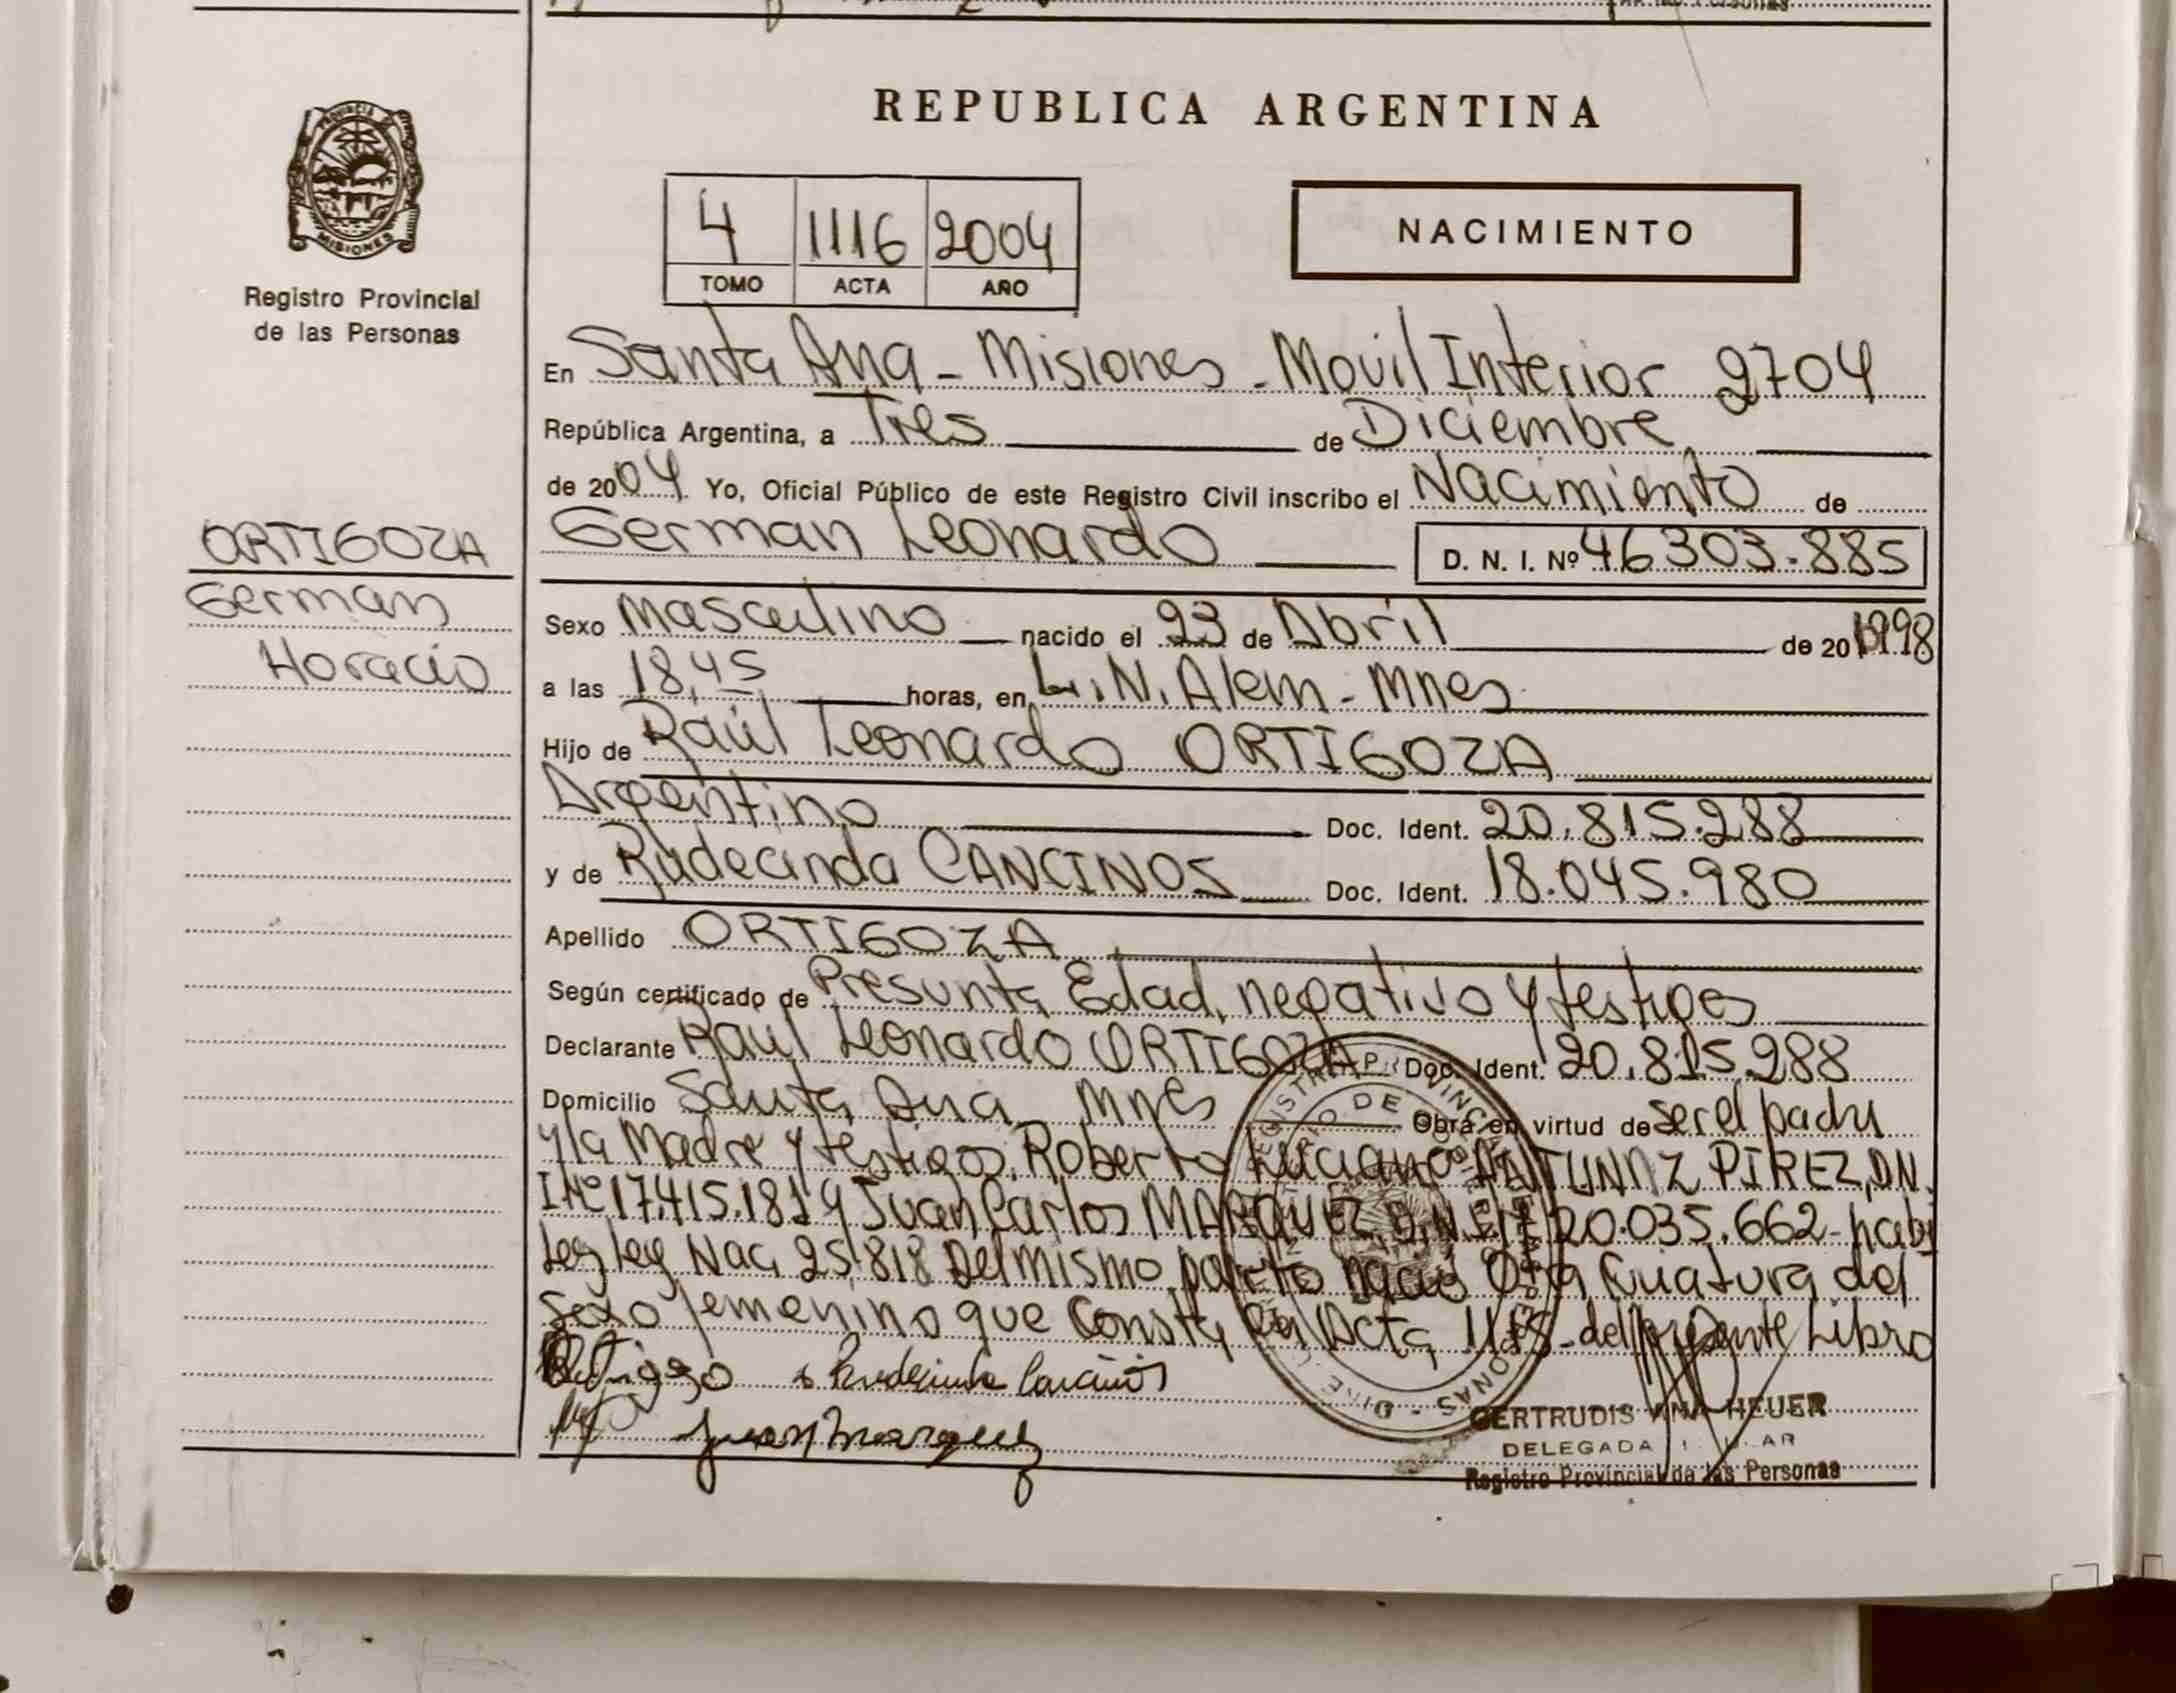 REPUBLICA ARGENTINA
PROVINCIA
MISIONES
Registro Provincial
de las Personas
4 1116 2004
TOMO ACTA AÑO
NACIMIENTO
En Santa Ana - Misiones - Movil Interior 2704
República Argentina, a Tres de Diciembre
de 2004 Yo, Oficial Público de este Registro Civil inscribo el Nacimiento de
German Leonardo D. N. I. Nº 46303.885
ORTIGOZA
German
Horacio
Sexo Masculino nacido el 23 de Abril de 20 1998
a las 18,45 horas, en L.N. Alem - Mnes
Hijo de Raúl Leonardo ORTIGOZA
Argentino Doc. Ident. 20.815.288
y de Rudecinda CANCINOS Doc. Ident. 18.045.980
Apellido ORTIGOZA
Según certificado de Presunta Edad, negativo y testigos
Declarante Raul Leonardo ORTIGOZA Doc. Ident. 20.815.288
Domicilio Santa Ana Mnes Obra en virtud de ser el padre
y la Madre y testigos, Roberto Luciano PIREZ, D.N.
I Nº 17.415.181 y Juan Carlos MARQUEZ, D.N.I Nº 20.035.662-
Ley Nac 25.818 Del mismo parto nació Otra Criatura del
Sexo femenino que Consta en Acta 1115 - del presente Libro
Juan Marquez
GERTRUDIS ANA HEUER
DELEGADA
Registro Provincial de las Personas